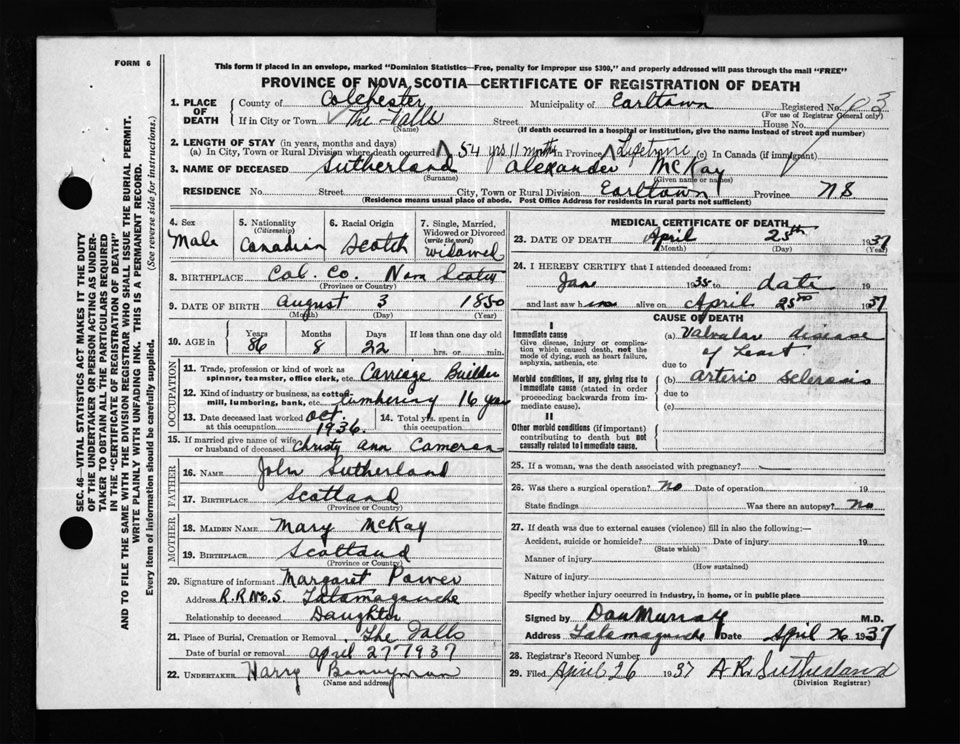 FORM 6
This form if placed in an envelope, marked "Dominion Statistics—Free, penalty for improper use $300," and properly addressed will pass through the mail "FREE"
PROVINCE OF NOVA SCOTIA—CERTIFICATE OF REGISTRATION OF DEATH
1. PLACE OF DEATH County of Colchester Municipality of Earltown Registered No.
(For use of Registrar General only)
If in City or Town The Falls Street House No.
(Name) (If death occurred in a hospital or institution, give the name instead of street and number)
2. LENGTH OF STAY (in years, months and days)
(a) In City, Town or Rural Division where death occurred 54 yrs 11 months in Province Lifetime (c) In Canada (if immigrant)
3. NAME OF DECEASED Sutherland Alexander McKay
(Surname) (Given name or names)
RESIDENCE No. Street City, Town or Rural Division Earltown Province NS
(Residence means usual place of abode. Post Office Address for residents in rural parts not sufficient)
4. Sex Male
5. Nationality (Citizenship) Canadian
6. Racial Origin Scotch
7. Single, Married, Widowed or Divorced (write the word) widowed
8. BIRTHPLACE Col. Co. Nova Scotia
(Province or Country)
9. DATE OF BIRTH August 3 1850
(Month) (Day) (Year)
10. AGE in Years 86 Months 8 Days 22 If less than one day old hrs. or min.
OCCUPATION
11. Trade, profession or kind of work as spinner, teamster, office clerk, etc. Carriage Builder
12. Kind of industry or business, as cotton mill, lumbering, bank, etc. Lumbering 16 years
13. Date deceased last worked at this occupation Oct. 1936.
14. Total yrs. spent in this occupation
15. If married give name of wife or husband of deceased Christy Ann Cameron
FATHER
16. NAME John Sutherland
17. BIRTHPLACE Scotland
(Province or Country)
MOTHER
18. MAIDEN NAME Mary McKay
19. BIRTHPLACE Scotland
(Province or Country)
20. Signature of informant Margaret Power
Address R.R. No. 5 Tatamagouche
Relationship to deceased Daughter
21. Place of Burial, Cremation or Removal The Falls
Date of burial or removal April 27 1937
22. UNDERTAKER Harry
(Name and address)
MEDICAL CERTIFICATE OF DEATH
23. DATE OF DEATH April 25th 1937
(Month) (Day)
24. I HEREBY CERTIFY that I attended deceased from:
Jan 1935 to date 19
and last saw him alive on April 25th 1937
CAUSE OF DEATH
I
Immediate cause
Give disease, injury or complication which caused death, not the mode of dying, such as heart failure, asphyxia, asthenia, etc.
(a) Valvular disease of heart
due to
Morbid conditions, if any, giving rise to immediate cause (stated in order proceeding backwards from immediate cause).
(b) Arterio Sclerosis
due to
(c)
II
Other morbid conditions (if important) contributing to death but not causally related to immediate cause.
25. If a woman, was the death associated with pregnancy?
26. Was there a surgical operation? No Date of operation 19
State findings Was there an autopsy? No
27. If death was due to external causes (violence) fill in also the following:—
Accident, suicide or homicide? Date of injury 19
(State which)
Manner of injury
(How sustained)
Nature of injury
Specify whether injury occurred in Industry, in home, or in public place
Signed by Dan Murray M.D.
Address Tatamagouche Date April 26 1937
28. Registrar's Record Number
29. Filed April 26 1937 A R Sutherland
(Division Registrar)
SEC. 46—VITAL STATISTICS ACT MAKES IT THE DUTY
OF THE UNDERTAKER OR PERSON ACTING AS UNDER-
TAKER TO OBTAIN ALL THE PARTICULARS REQUIRED
IN THE "CERTIFICATE OF REGISTRATION OF DEATH"
AND TO FILE THE SAME WITH THE DIVISION REGISTRAR WHO SHALL ISSUE THE BURIAL PERMIT.
WRITE PLAINLY WITH UNFADING INK. THIS IS A PERMANENT RECORD.
Every item of information should be carefully supplied. (See reverse side for instructions.)